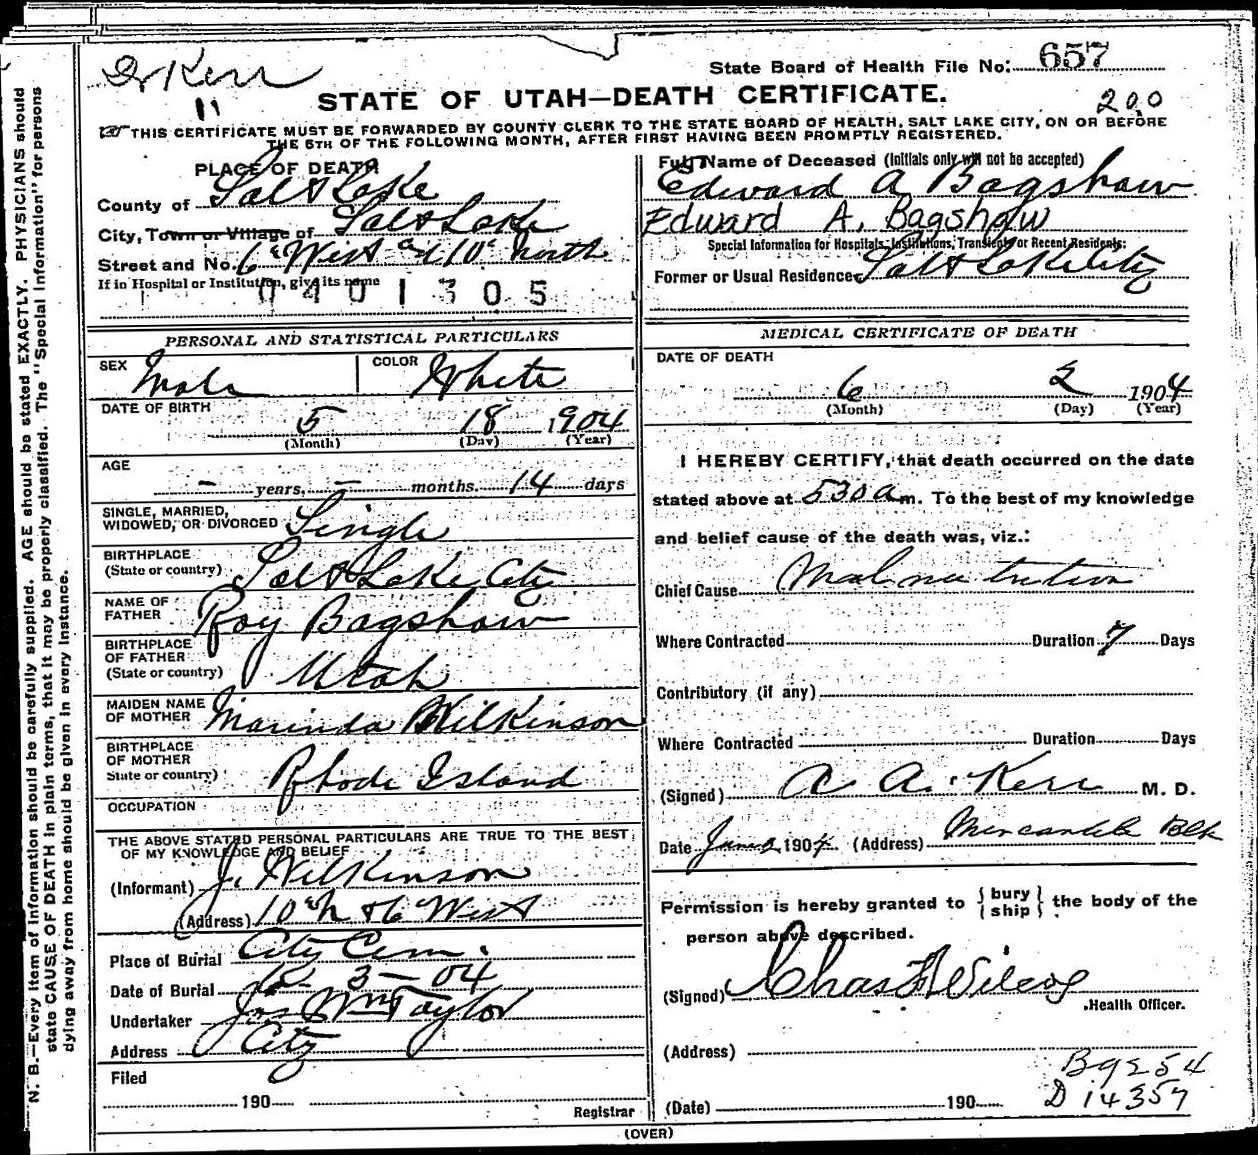 Dr Kerr
11
State Board of Health File No: 657
STATE OF UTAH—DEATH CERTIFICATE.
200
THIS CERTIFICATE MUST BE FORWARDED BY COUNTY CLERK TO THE STATE BOARD OF HEALTH, SALT LAKE CITY, ON OR BEFORE
THE 5TH OF THE FOLLOWING MONTH, AFTER FIRST HAVING BEEN PROMPTLY REGISTERED.
PLACE OF DEATH
County of Salt Lake
City, Town or Village of Salt Lake
Street and No. 6th West and 10th North
If in Hospital or Institution, give its name
0401305
PERSONAL AND STATISTICAL PARTICULARS
SEX Male COLOR White
DATE OF BIRTH
5 18 1904
(Month) (Day) (Year)
AGE
— years, — months. 14 days
SINGLE, MARRIED,
WIDOWED, OR DIVORCED Single
BIRTHPLACE
(State or country) Salt Lake City
NAME OF
FATHER Roy Bagshaw
BIRTHPLACE
OF FATHER
(State or country) Utah
MAIDEN NAME
OF MOTHER Marinda Wilkinson
BIRTHPLACE
OF MOTHER
State or country) Rhode Island
OCCUPATION
THE ABOVE STATED PERSONAL PARTICULARS ARE TRUE TO THE BEST
OF MY KNOWLEDGE AND BELIEF
(Informant) J. Wilkinson
(Address) 10th N & 6th West
Place of Burial City Cem.
Date of Burial 6- 3- 04
Undertaker Jos Wm Taylor
Address City
Filed
190
Registrar
Full Name of Deceased (Initials only will not be accepted)
Edward A Bagshaw
Edward A. Bagshaw
Special Information for Hospitals, Institutions, Transients or Recent Residents:
Former or Usual Residence Salt Lake City
MEDICAL CERTIFICATE OF DEATH
DATE OF DEATH
6 2 1904
(Month) (Day) (Year)
I HEREBY CERTIFY, that death occurred on the date
stated above at 530 a m. To the best of my knowledge
and belief cause of the death was, viz.:
Chief Cause Malnutrition
Where Contracted Duration 7 Days
Contributory (if any)
Where Contracted Duration Days
(Signed) A. A. Kerr M. D.
Date June 2 1904. (Address) Mercantile Blk
Permission is hereby granted to {bury ship} the body of the
person above described.
(Signed) Chas F Wilcox
Health Officer.
(Address)
(Date) 190
B9254
D 14357
(OVER)
N. B.—Every item of information should be carefully supplied. AGE should be stated EXACTLY. PHYSICIANS should
state CAUSE OF DEATH in plain terms, that it may be properly classified. The "Special Information" for persons
dying away from home should be given in every instance.